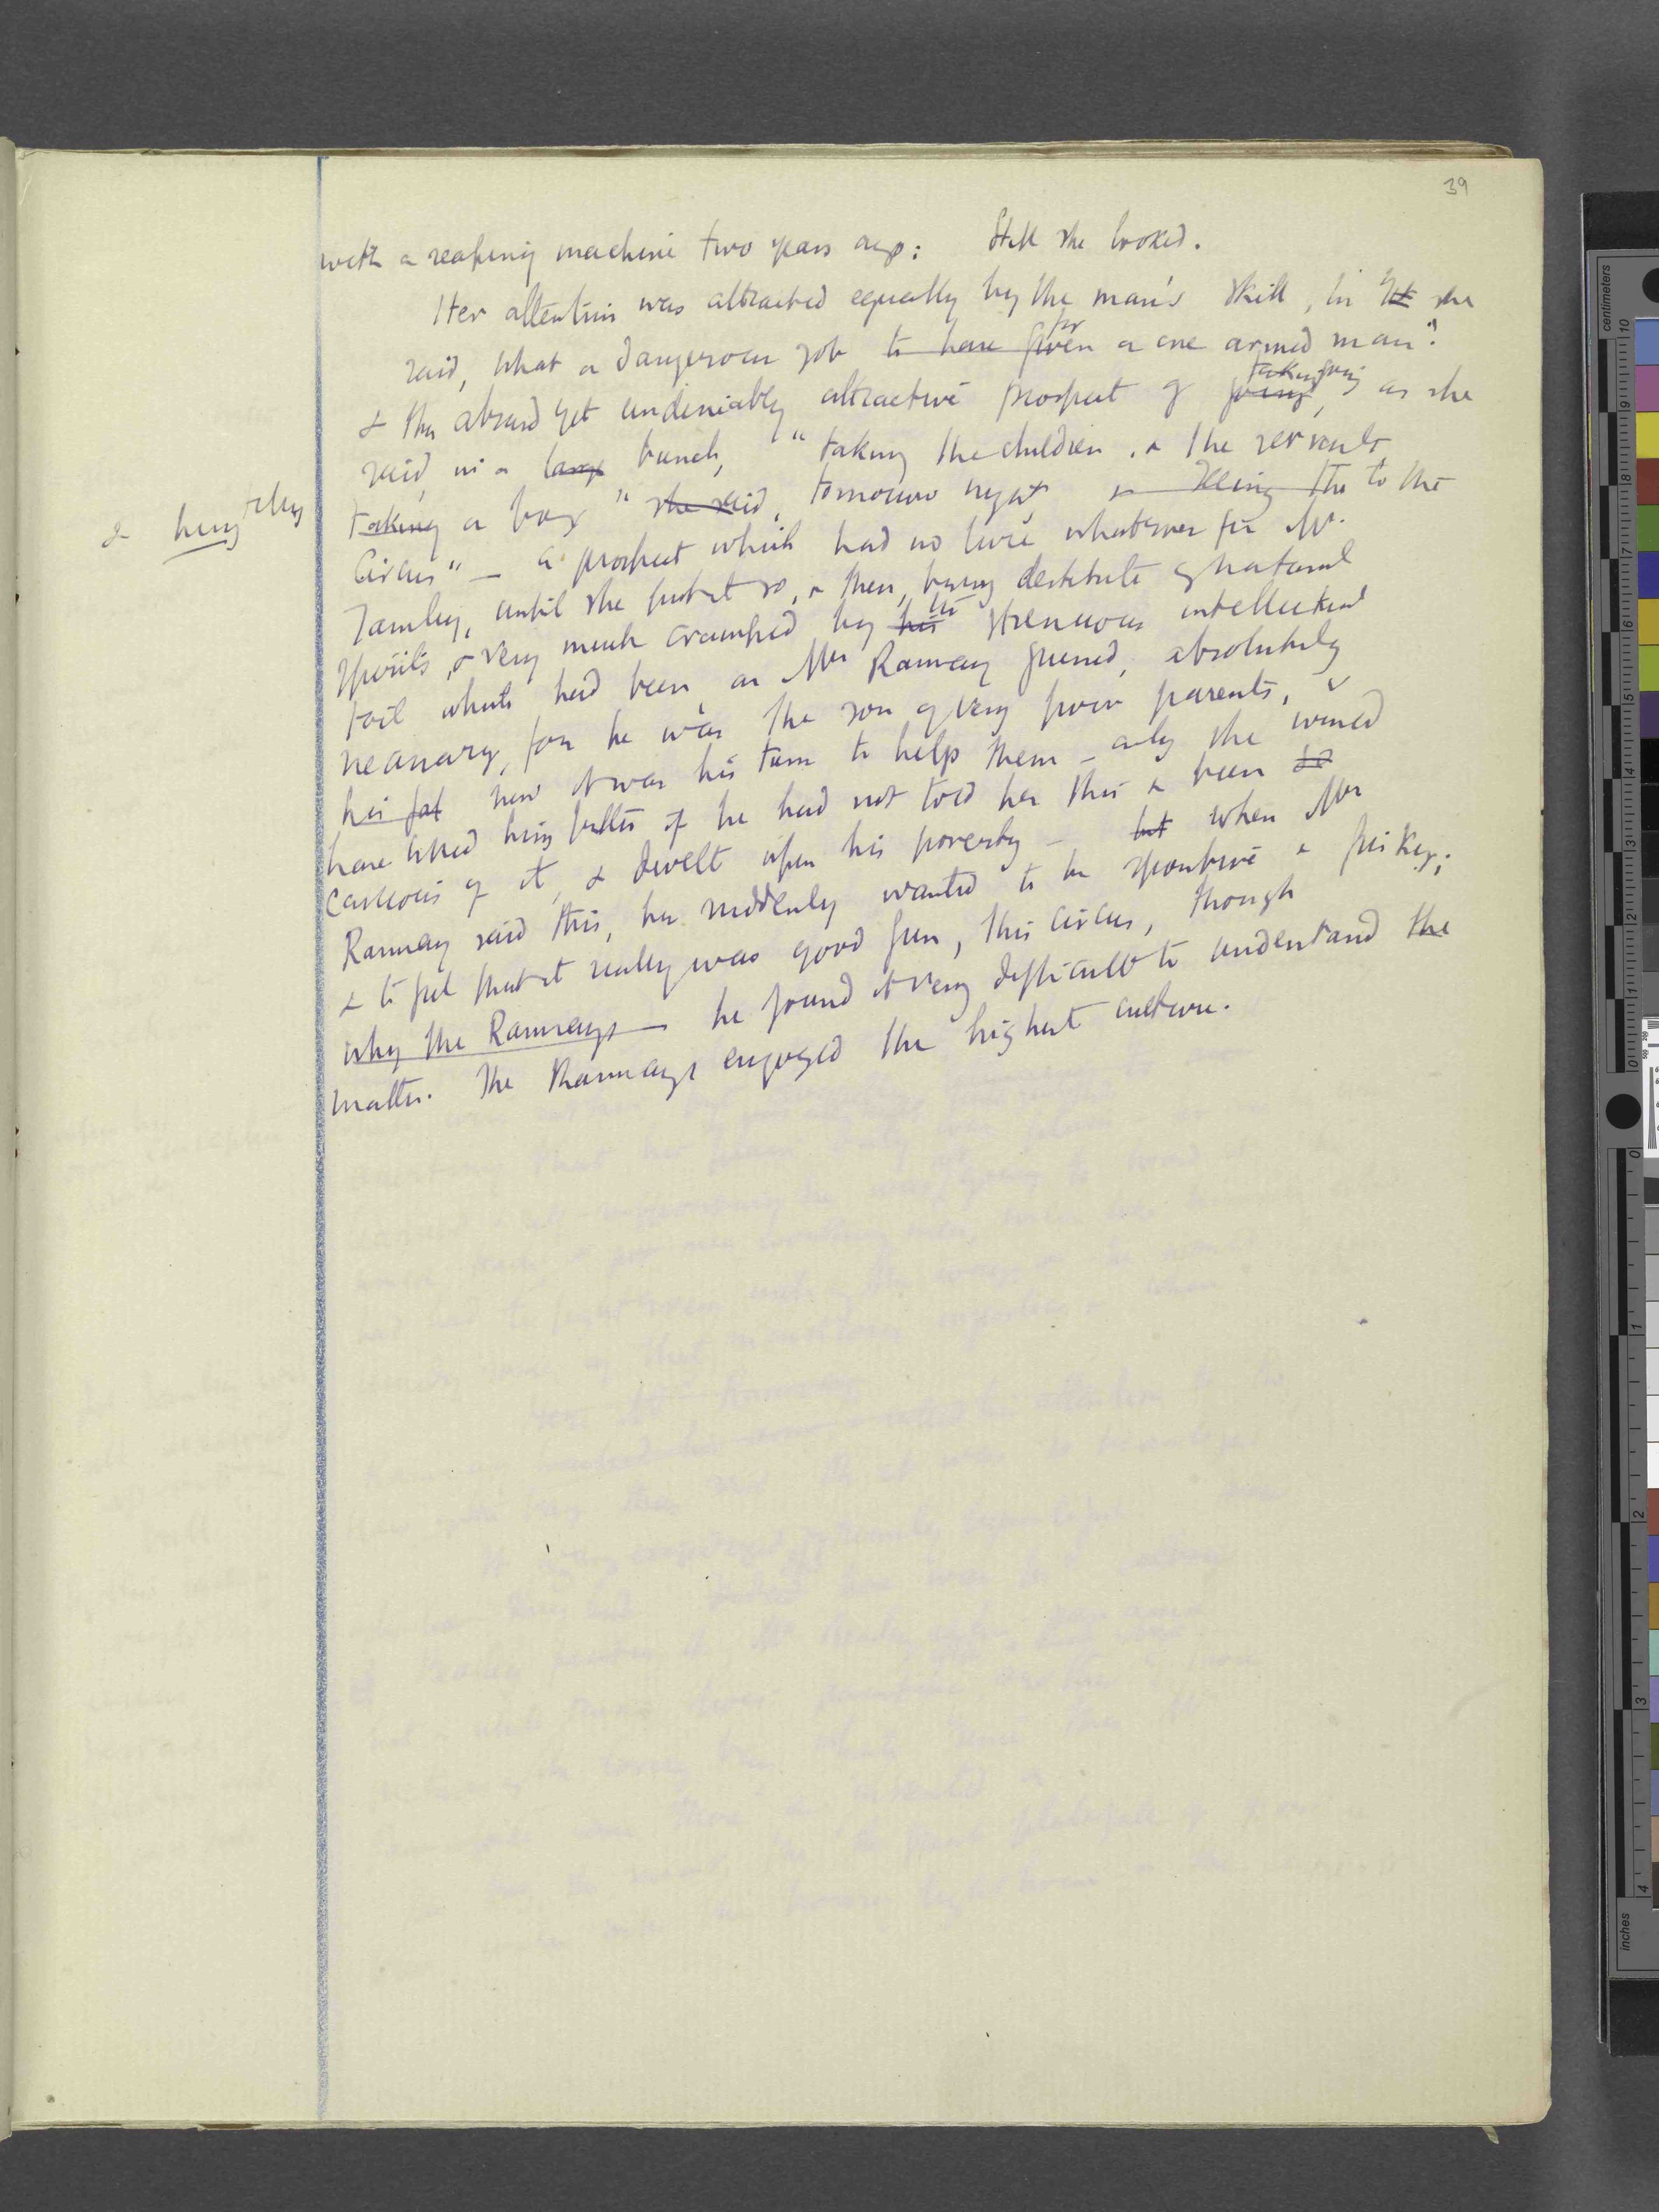 39
with a reaping machine two years ago: Still she looked.
Her attention was attracted equally by the man's skill, in it she
said, what a dangerous job to have given for a one armed man":
& the absurd yet undeniably attractive prospect of going taking going, as she
said, in a large bunch, "taking the children, & the servants,
taking a box" she said, tomorrow night, & seeing the to the
& being
Circus" — a prospect which had no lure whatever for Mr.
Tansley, until she put it so, & then, being destitute of natural
spirits, & very much cramped by his the strenuous intellectual
toil which had been, as Mrs Ramsay guessed, absolutely
necessary, for he was the son of very poor parents, &
his fat now it was his turn to help them — only she would
have liked him better if he had not told her this & been so
conscious of it, & dwelt upon his poverty — but when Mrs
Ramsay said this, he suddenly wanted to be sportive & frisky;
& to feel that it really was good fun, this circus, though
why the Ramsays — he found it very difficult to understand the
matter. The Ramsays enjoyed the highest culture.
centimeters
inches